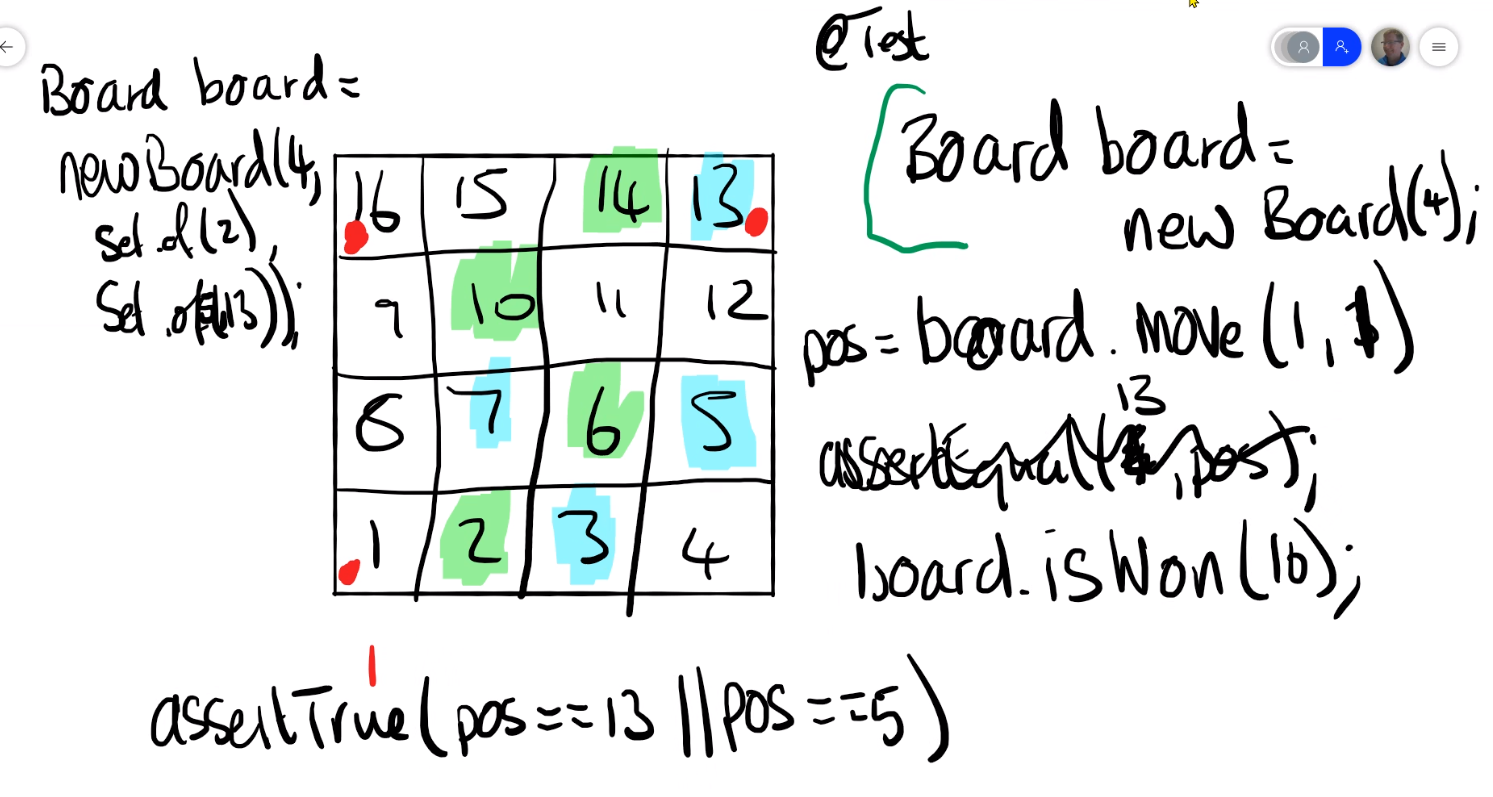 Board board =
new Board(4,
Set.of(2),
Set.of(13));
16 15 14 13
9 10 11 12
8 7 6 5
1 2 3 4
@Test
Board board =
new Board(4);
pos = board.move(1, 1)
13
assertEqual( , pos);
board.isWon(16);
assertTrue(pos==13 || pos==5)